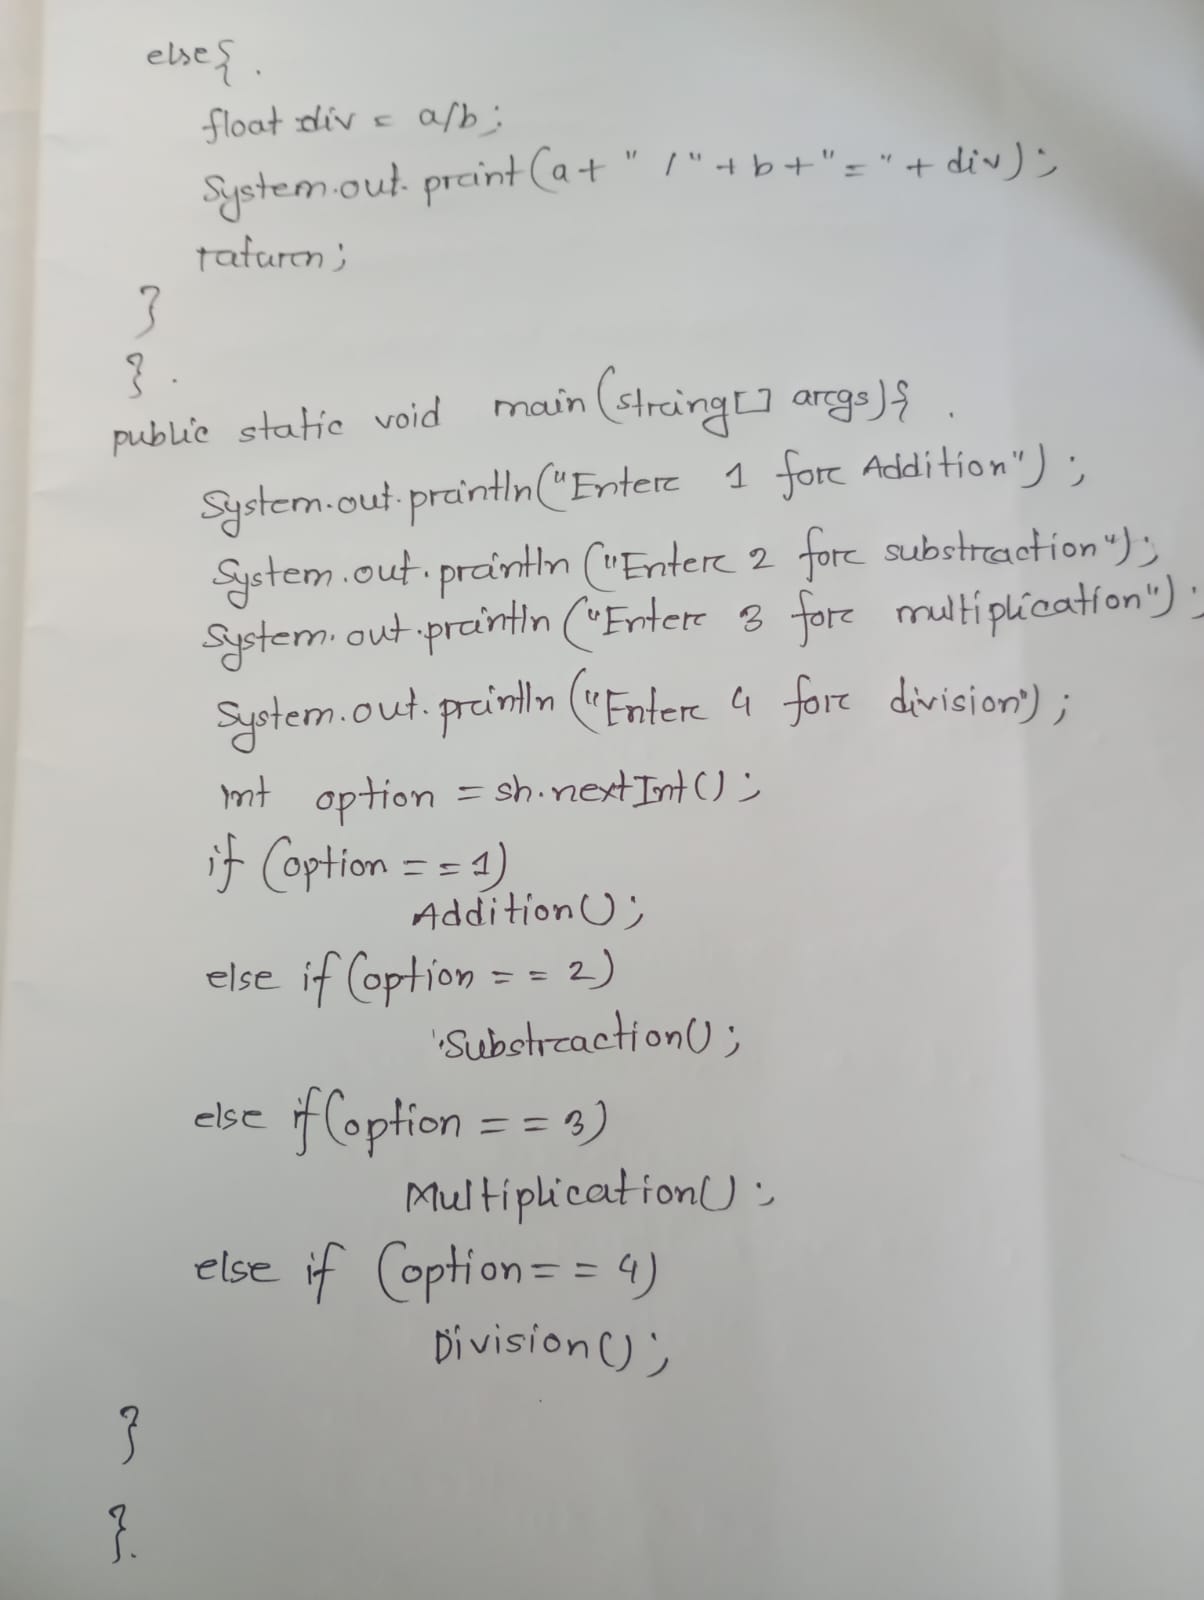 else{
float div = a/b;
System.out.print(a+ " / "+b+" = "+ div);
return;
}
}
public static void main(string[] args){
System.out.println("Enter 1 for Addition");
System.out.println("Enter 2 for substraction");
System.out.println("Enter 3 for multiplication");
System.out.println("Enter 4 for division");
int option = sh.nextInt();
if (option == 1)
Addition();
else if (option == 2)
Substraction();
else if (option == 3)
Multiplication();
else if (option == 4)
Division();
}
}